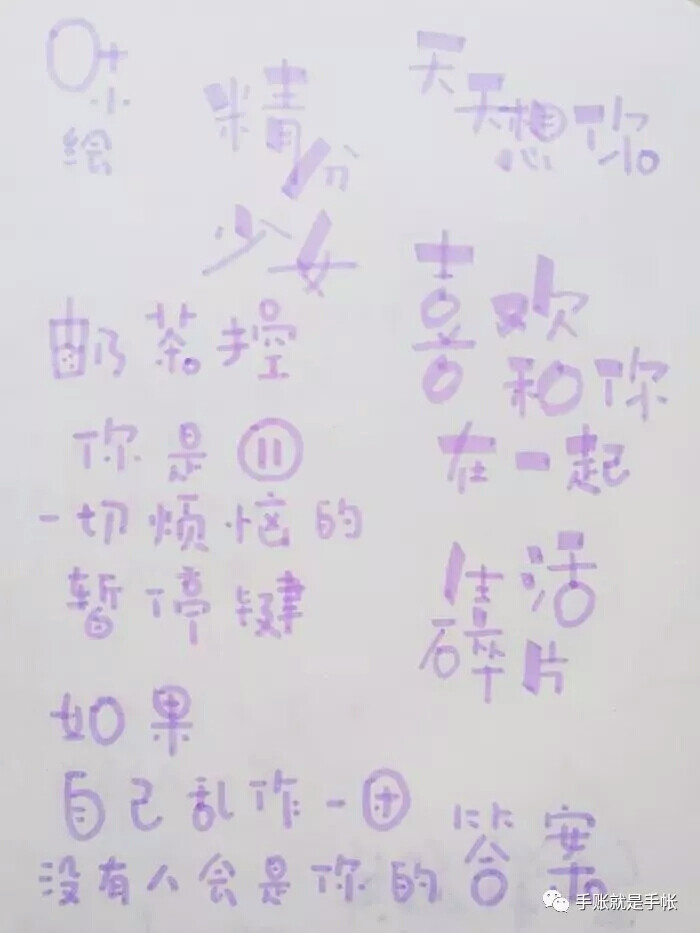 绘
精分
少女
天天想你
奶茶控
喜欢
和你
在一起
你是
一切烦恼的
暂停键
生活
碎片
如果
自己乱作一团
没有人会是你的答案
手账就是手帐